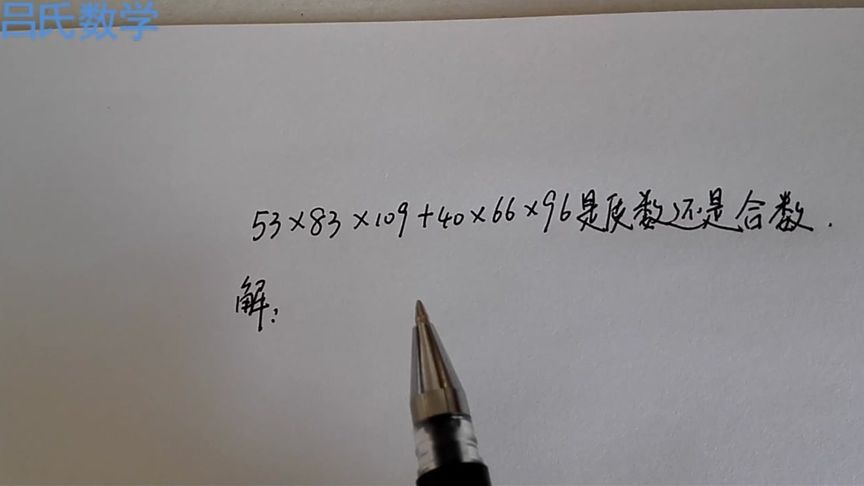 吕氏数学
53×83×109+40×66×96是质数还是合数.
解: